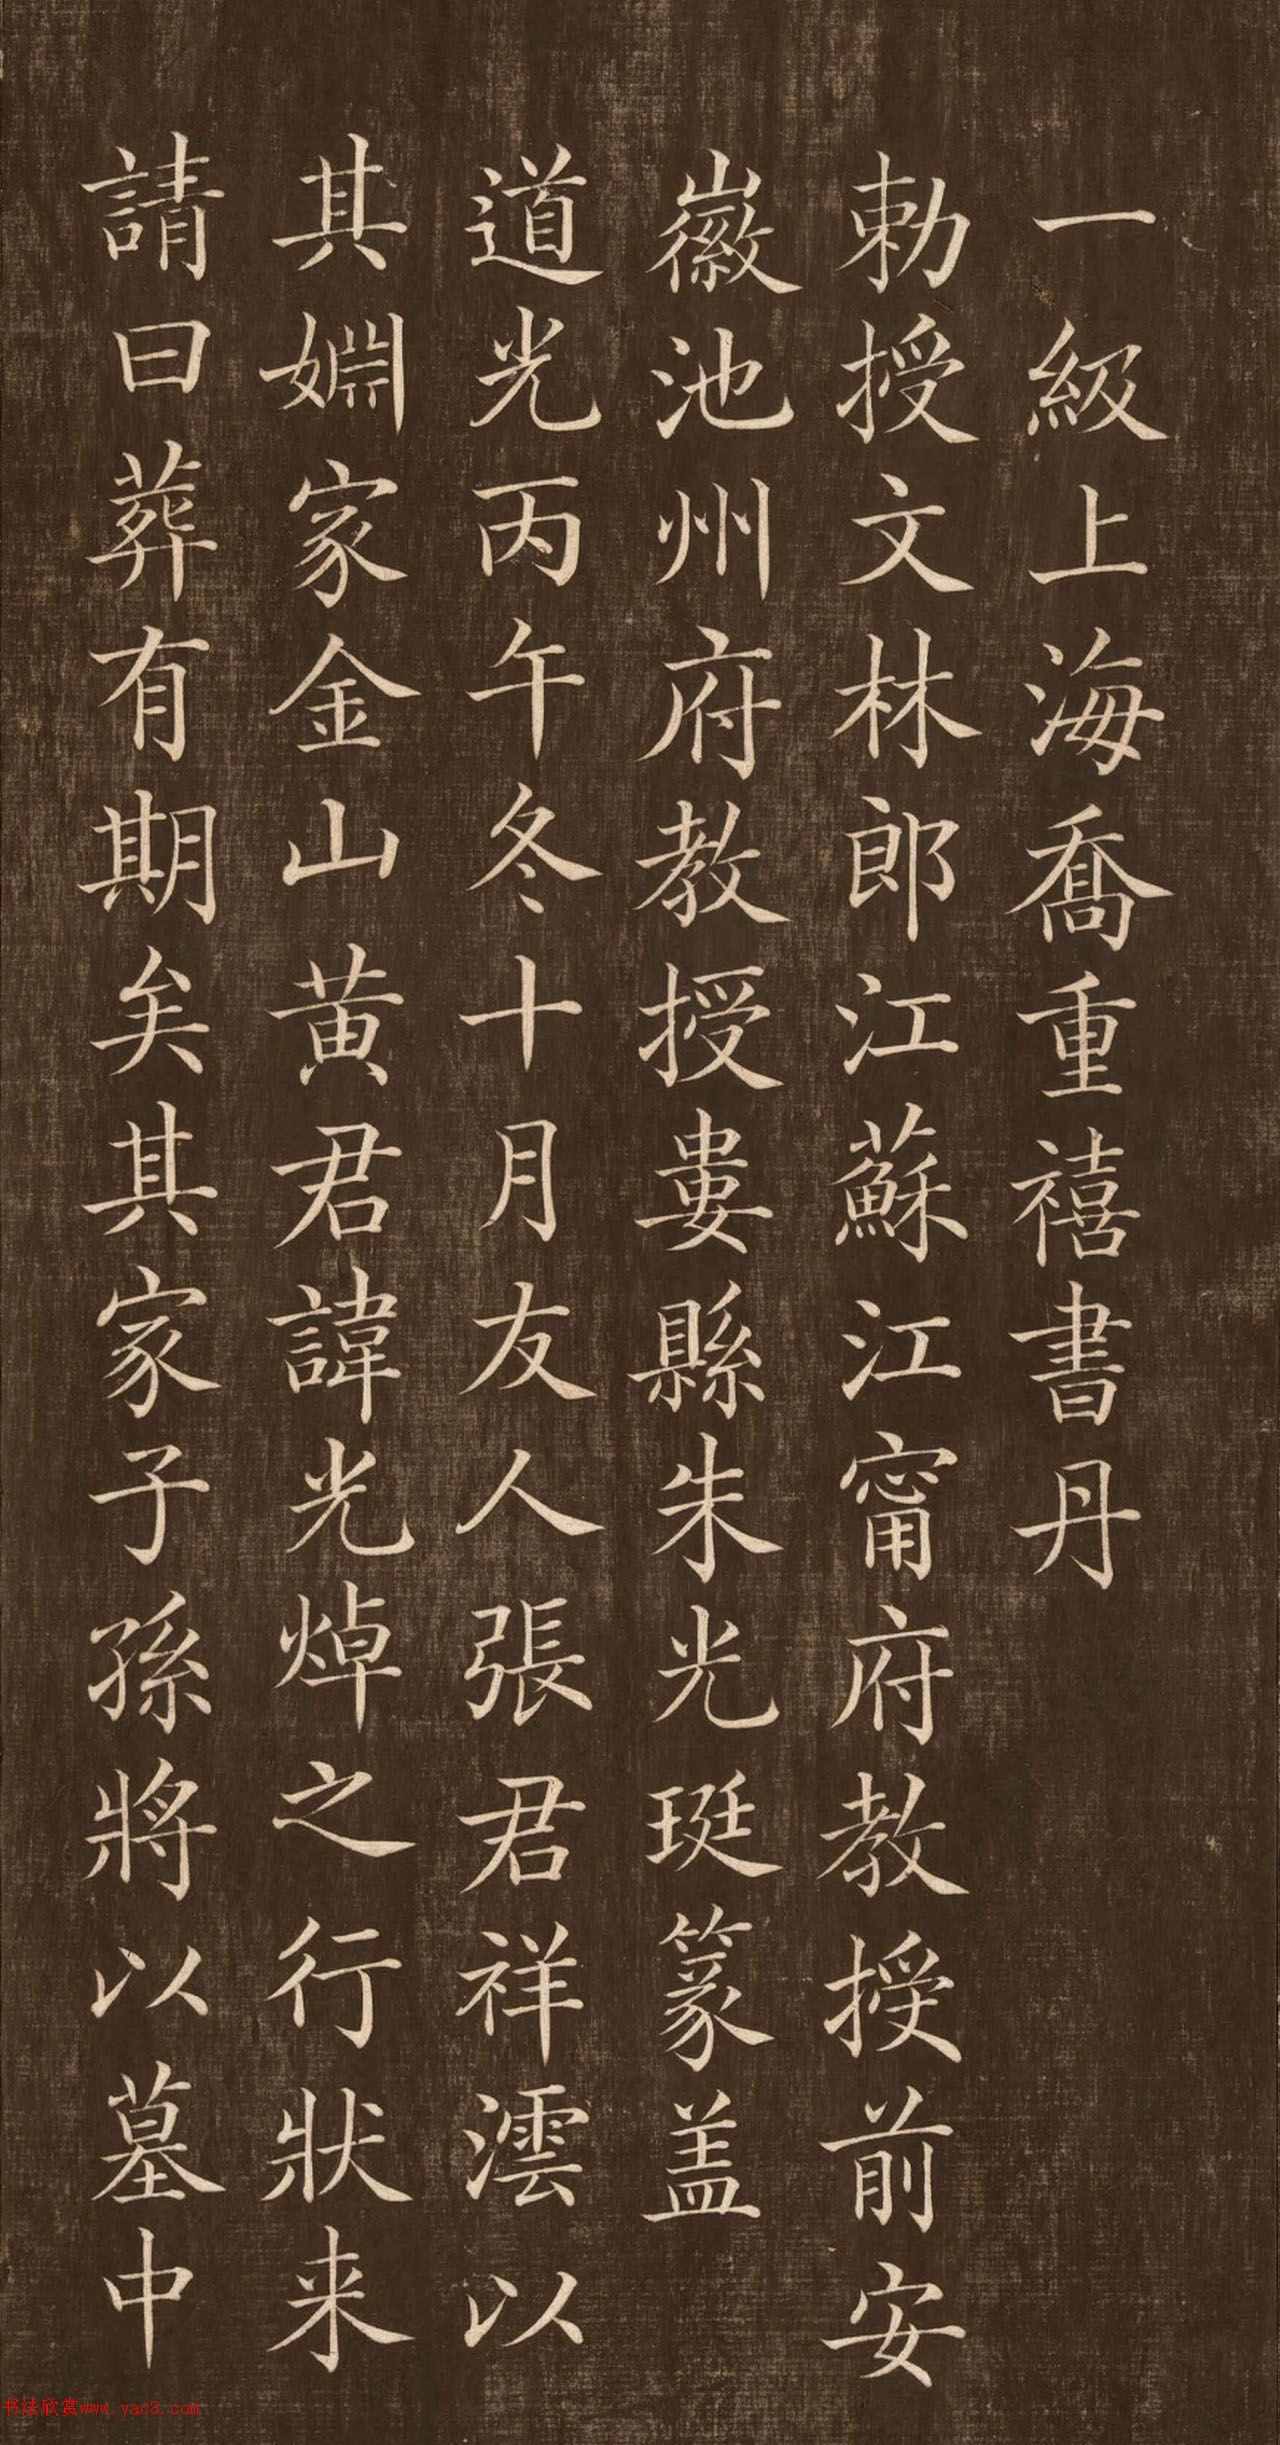 一級上海喬重禧書丹
勅授文林郎江蘇江甯府教授前安
徽池州府教授婁縣朱光珽篆盖
道光丙午冬十月友人張君祥澐以
其婣家金山黄君諱光焯之行狀来
請曰葬有期矣其家子孫將以墓中
书法欣赏www.yac8.com